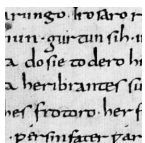 arungo · iro saro r
mun · gurtun sih ·
a do sie to dero hi
a heribrantes su
hes frotoro · her f
· ƿer sin fater ƿar